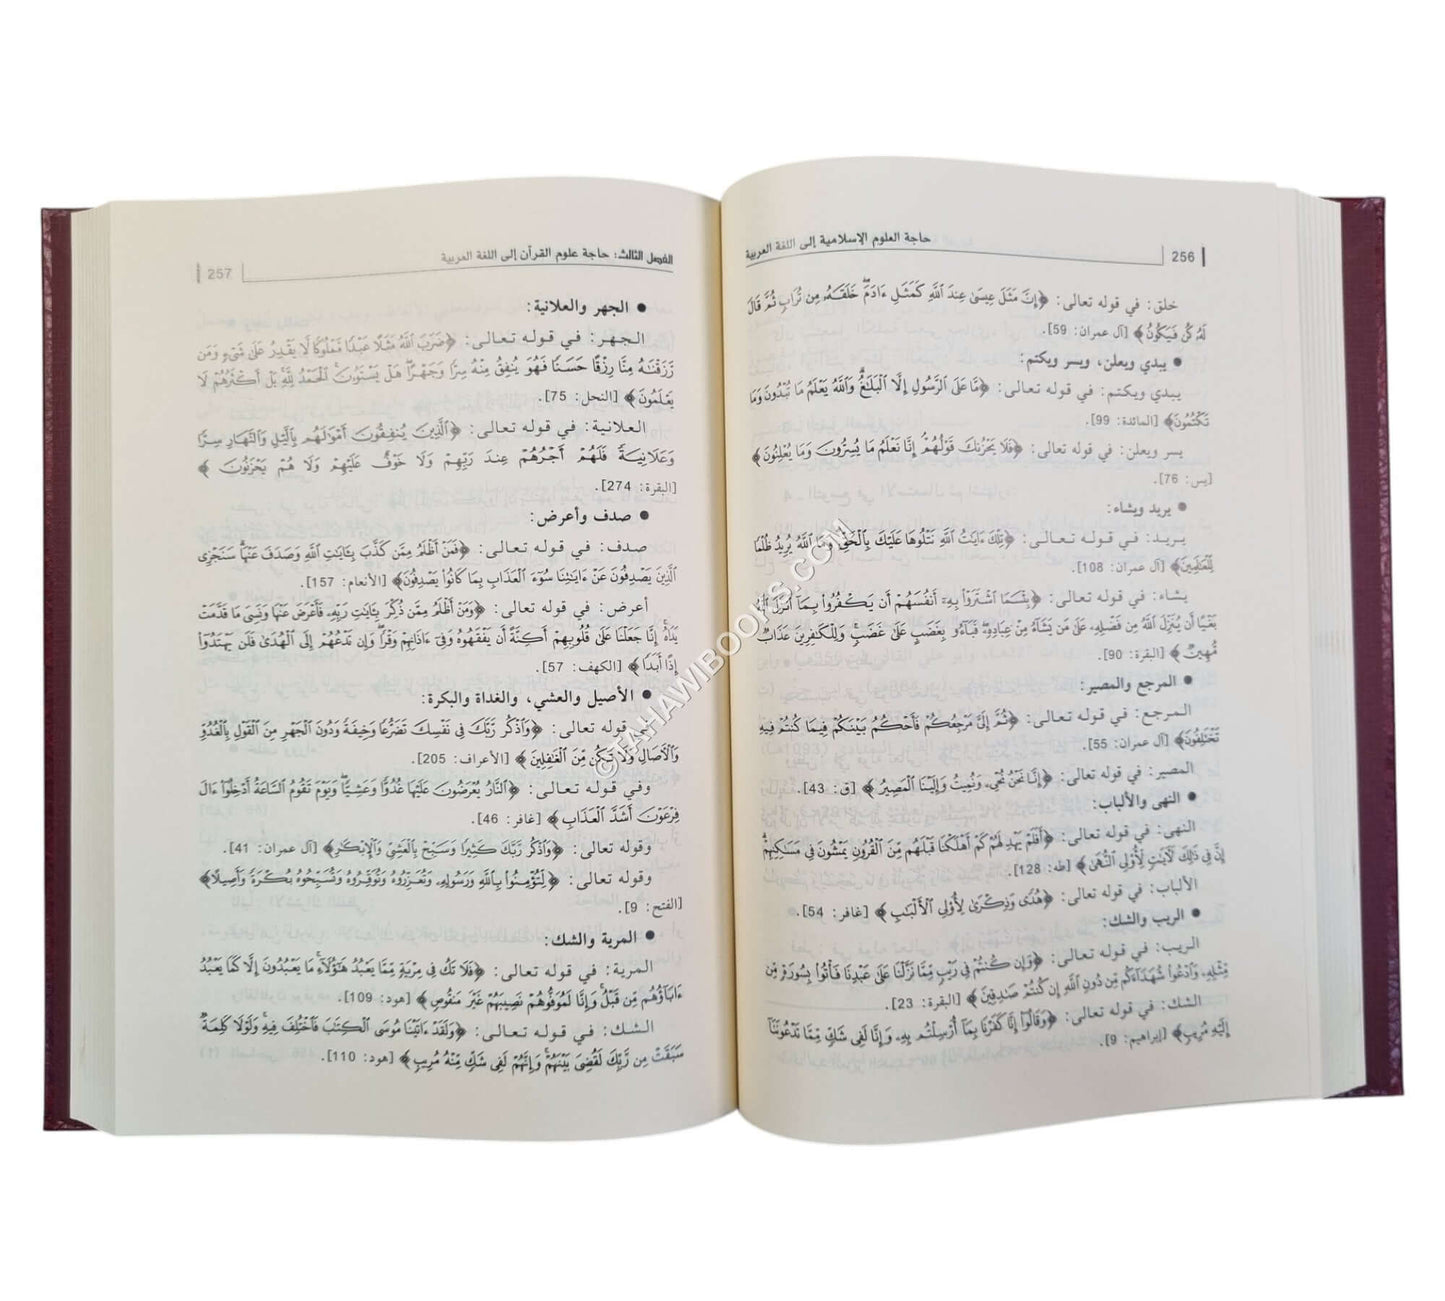 256
حاجة العلوم الإسلامية إلى اللغة العربية
خلق: في قوله تعالى: ﴿إِنَّ مَثَلَ عِيسَىٰ عِندَ ٱللَّهِ كَمَثَلِ ءَادَمَ ۖ خَلَقَهُۥ مِن تُرَابٍ ثُمَّ قَالَ
لَهُۥ كُن فَيَكُونُ﴾ [آل عمران: 59].
● يبدي ويعلن، ويسر ويكتم:
يبدي ويكتم: في قوله تعالى: ﴿مَّا عَلَى ٱلرَّسُولِ إِلَّا ٱلْبَلَٰغُ ۗ وَٱللَّهُ يَعْلَمُ مَا تُبْدُونَ وَمَا
تَكْتُمُونَ﴾ [المائدة: 99].
يسر ويعلن: في قوله تعالى: ﴿فَلَا يَحْزُنكَ قَوْلُهُمْ ۘ إِنَّا نَعْلَمُ مَا يُسِرُّونَ وَمَا يُعْلِنُونَ﴾
[يس: 76].
● يريد ويشاء:
يريد: في قوله تعالى: ﴿تِلْكَ ءَايَٰتُ ٱللَّهِ نَتْلُوهَا عَلَيْكَ بِٱلْحَقِّ ۗ وَمَا ٱللَّهُ يُرِيدُ ظُلْمًا
لِّلْعَٰلَمِينَ﴾ [آل عمران: 108].
يشاء: في قوله تعالى: ﴿بِئْسَمَا ٱشْتَرَوْا۟ بِهِۦٓ أَنفُسَهُمْ أَن يَكْفُرُوا۟ بِمَآ أَنزَلَ ٱللَّهُ
بَغْيًا أَن يُنَزِّلَ ٱللَّهُ مِن فَضْلِهِۦ عَلَىٰ مَن يَشَآءُ مِنْ عِبَادِهِۦ ۖ فَبَآءُو بِغَضَبٍ عَلَىٰ غَضَبٍ ۚ وَلِلْكَٰفِرِينَ عَذَابٌ
مُّهِينٌ﴾ [البقرة: 90].
● المرجع والمصير:
المرجع: في قوله تعالى: ﴿ثُمَّ إِلَىَّ مَرْجِعُكُمْ فَأَحْكُمُ بَيْنَكُمْ فِيمَا كُنتُمْ فِيهِ
تَخْتَلِفُونَ﴾ [آل عمران: 55].
المصير: في قوله تعالى: ﴿إِنَّا نَحْنُ نُحْىِۦ وَنُمِيتُ وَإِلَيْنَا ٱلْمَصِيرُ﴾ [ق: 43].
● النهى والألباب:
النهى: في قوله تعالى: ﴿أَفَلَمْ يَهْدِ لَهُمْ كَمْ أَهْلَكْنَا قَبْلَهُم مِّنَ ٱلْقُرُونِ يَمْشُونَ فِى مَسَٰكِنِهِمْ ۗ
إِنَّ فِى ذَٰلِكَ لَءَايَٰتٍ لِّأُو۟لِى ٱلنُّهَىٰ﴾ [طه: 128].
الألباب: في قوله تعالى: ﴿هُدًى وَذِكْرَىٰ لِأُو۟لِى ٱلْأَلْبَٰبِ﴾ [غافر: 54].
● الريب والشك:
الريب: في قوله تعالى: ﴿وَإِن كُنتُمْ فِى رَيْبٍ مِّمَّا نَزَّلْنَا عَلَىٰ عَبْدِنَا فَأْتُوا۟ بِسُورَةٍ مِّن
مِّثْلِهِۦ وَٱدْعُوا۟ شُهَدَآءَكُم مِّن دُونِ ٱللَّهِ إِن كُنتُمْ صَٰدِقِينَ﴾ [البقرة: 23].
الشك: في قوله تعالى: ﴿وَقَالُوٓا۟ إِنَّا كَفَرْنَا بِمَآ أُرْسِلْتُم بِهِۦ وَإِنَّا لَفِى شَكٍّ مِّمَّا تَدْعُونَنَآ
إِلَيْهِ مُرِيبٍ﴾ [إبراهيم: 9].
الفصل الثالث: حاجة علوم القرآن إلى اللغة العربية
257
● الجهر والعلانية:
الجهر: في قوله تعالى: ﴿ضَرَبَ ٱللَّهُ مَثَلًا عَبْدًا مَّمْلُوكًا لَّا يَقْدِرُ عَلَىٰ شَىْءٍ وَمَن
رَّزَقْنَٰهُ مِنَّا رِزْقًا حَسَنًا فَهُوَ يُنفِقُ مِنْهُ سِرًّا وَجَهْرًا ۖ هَلْ يَسْتَوُۥنَ ۚ ٱلْحَمْدُ لِلَّهِ ۚ بَلْ أَكْثَرُهُمْ لَا
يَعْلَمُونَ﴾ [النحل: 75].
العلانية: في قوله تعالى: ﴿ٱلَّذِينَ يُنفِقُونَ أَمْوَٰلَهُم بِٱلَّيْلِ وَٱلنَّهَارِ سِرًّا
وَعَلَانِيَةً فَلَهُمْ أَجْرُهُمْ عِندَ رَبِّهِمْ وَلَا خَوْفٌ عَلَيْهِمْ وَلَا هُمْ يَحْزَنُونَ﴾
[البقرة: 274].
● صدف وأعرض:
صدف: في قوله تعالى: ﴿فَمَنْ أَظْلَمُ مِمَّن كَذَّبَ بِـَٔايَٰتِ ٱللَّهِ وَصَدَفَ عَنْهَا ۗ سَنَجْزِى
ٱلَّذِينَ يَصْدِفُونَ عَنْ ءَايَٰتِنَا سُوٓءَ ٱلْعَذَابِ بِمَا كَانُوا۟ يَصْدِفُونَ﴾ [الأنعام: 157].
أعرض: في قوله تعالى: ﴿وَمَنْ أَظْلَمُ مِمَّن ذُكِّرَ بِـَٔايَٰتِ رَبِّهِۦ فَأَعْرَضَ عَنْهَا وَنَسِىَ مَا قَدَّمَتْ
يَدَاهُ ۚ إِنَّا جَعَلْنَا عَلَىٰ قُلُوبِهِمْ أَكِنَّةً أَن يَفْقَهُوهُ وَفِىٓ ءَاذَانِهِمْ وَقْرًا ۖ وَإِن تَدْعُهُمْ إِلَى ٱلْهُدَىٰ فَلَن يَهْتَدُوٓا۟
إِذًا أَبَدًا﴾ [الكهف: 57].
● الأصيل والعشي، والغداة والبكرة:
قوله تعالى: ﴿وَٱذْكُر رَّبَّكَ فِى نَفْسِكَ تَضَرُّعًا وَخِيفَةً وَدُونَ ٱلْجَهْرِ مِنَ ٱلْقَوْلِ بِٱلْغُدُوِّ
وَٱلْءَاصَالِ وَلَا تَكُن مِّنَ ٱلْغَٰفِلِينَ﴾ [الأعراف: 205].
وفي قوله تعالى: ﴿ٱلنَّارُ يُعْرَضُونَ عَلَيْهَا غُدُوًّا وَعَشِيًّا ۖ وَيَوْمَ تَقُومُ ٱلسَّاعَةُ أَدْخِلُوٓا۟ ءَالَ
فِرْعَوْنَ أَشَدَّ ٱلْعَذَابِ﴾ [غافر: 46].
وقوله تعالى: ﴿وَٱذْكُر رَّبَّكَ كَثِيرًا وَسَبِّحْ بِٱلْعَشِىِّ وَٱلْإِبْكَٰرِ﴾ [آل عمران: 41].
وقوله تعالى: ﴿لِّتُؤْمِنُوا۟ بِٱللَّهِ وَرَسُولِهِۦ وَتُعَزِّرُوهُ وَتُوَقِّرُوهُ وَتُسَبِّحُوهُ بُكْرَةً وَأَصِيلًا﴾
[الفتح: 9].
● المرية والشك:
المرية: في قوله تعالى: ﴿فَلَا تَكُ فِى مِرْيَةٍ مِّمَّا يَعْبُدُ هَٰٓؤُلَآءِ ۚ مَا يَعْبُدُونَ إِلَّا كَمَا يَعْبُدُ
ءَابَآؤُهُم مِّن قَبْلُ ۚ وَإِنَّا لَمُوَفُّوهُمْ نَصِيبَهُمْ غَيْرَ مَنقُوصٍ﴾ [هود: 109].
الشك: في قوله تعالى: ﴿وَلَقَدْ ءَاتَيْنَا مُوسَى ٱلْكِتَٰبَ فَٱخْتُلِفَ فِيهِ ۚ وَلَوْلَا كَلِمَةٌ
سَبَقَتْ مِن رَّبِّكَ لَقُضِىَ بَيْنَهُمْ ۚ وَإِنَّهُمْ لَفِى شَكٍّ مِّنْهُ مُرِيبٍ﴾ [هود: 110].
©TAHAWIBOOKS.COM